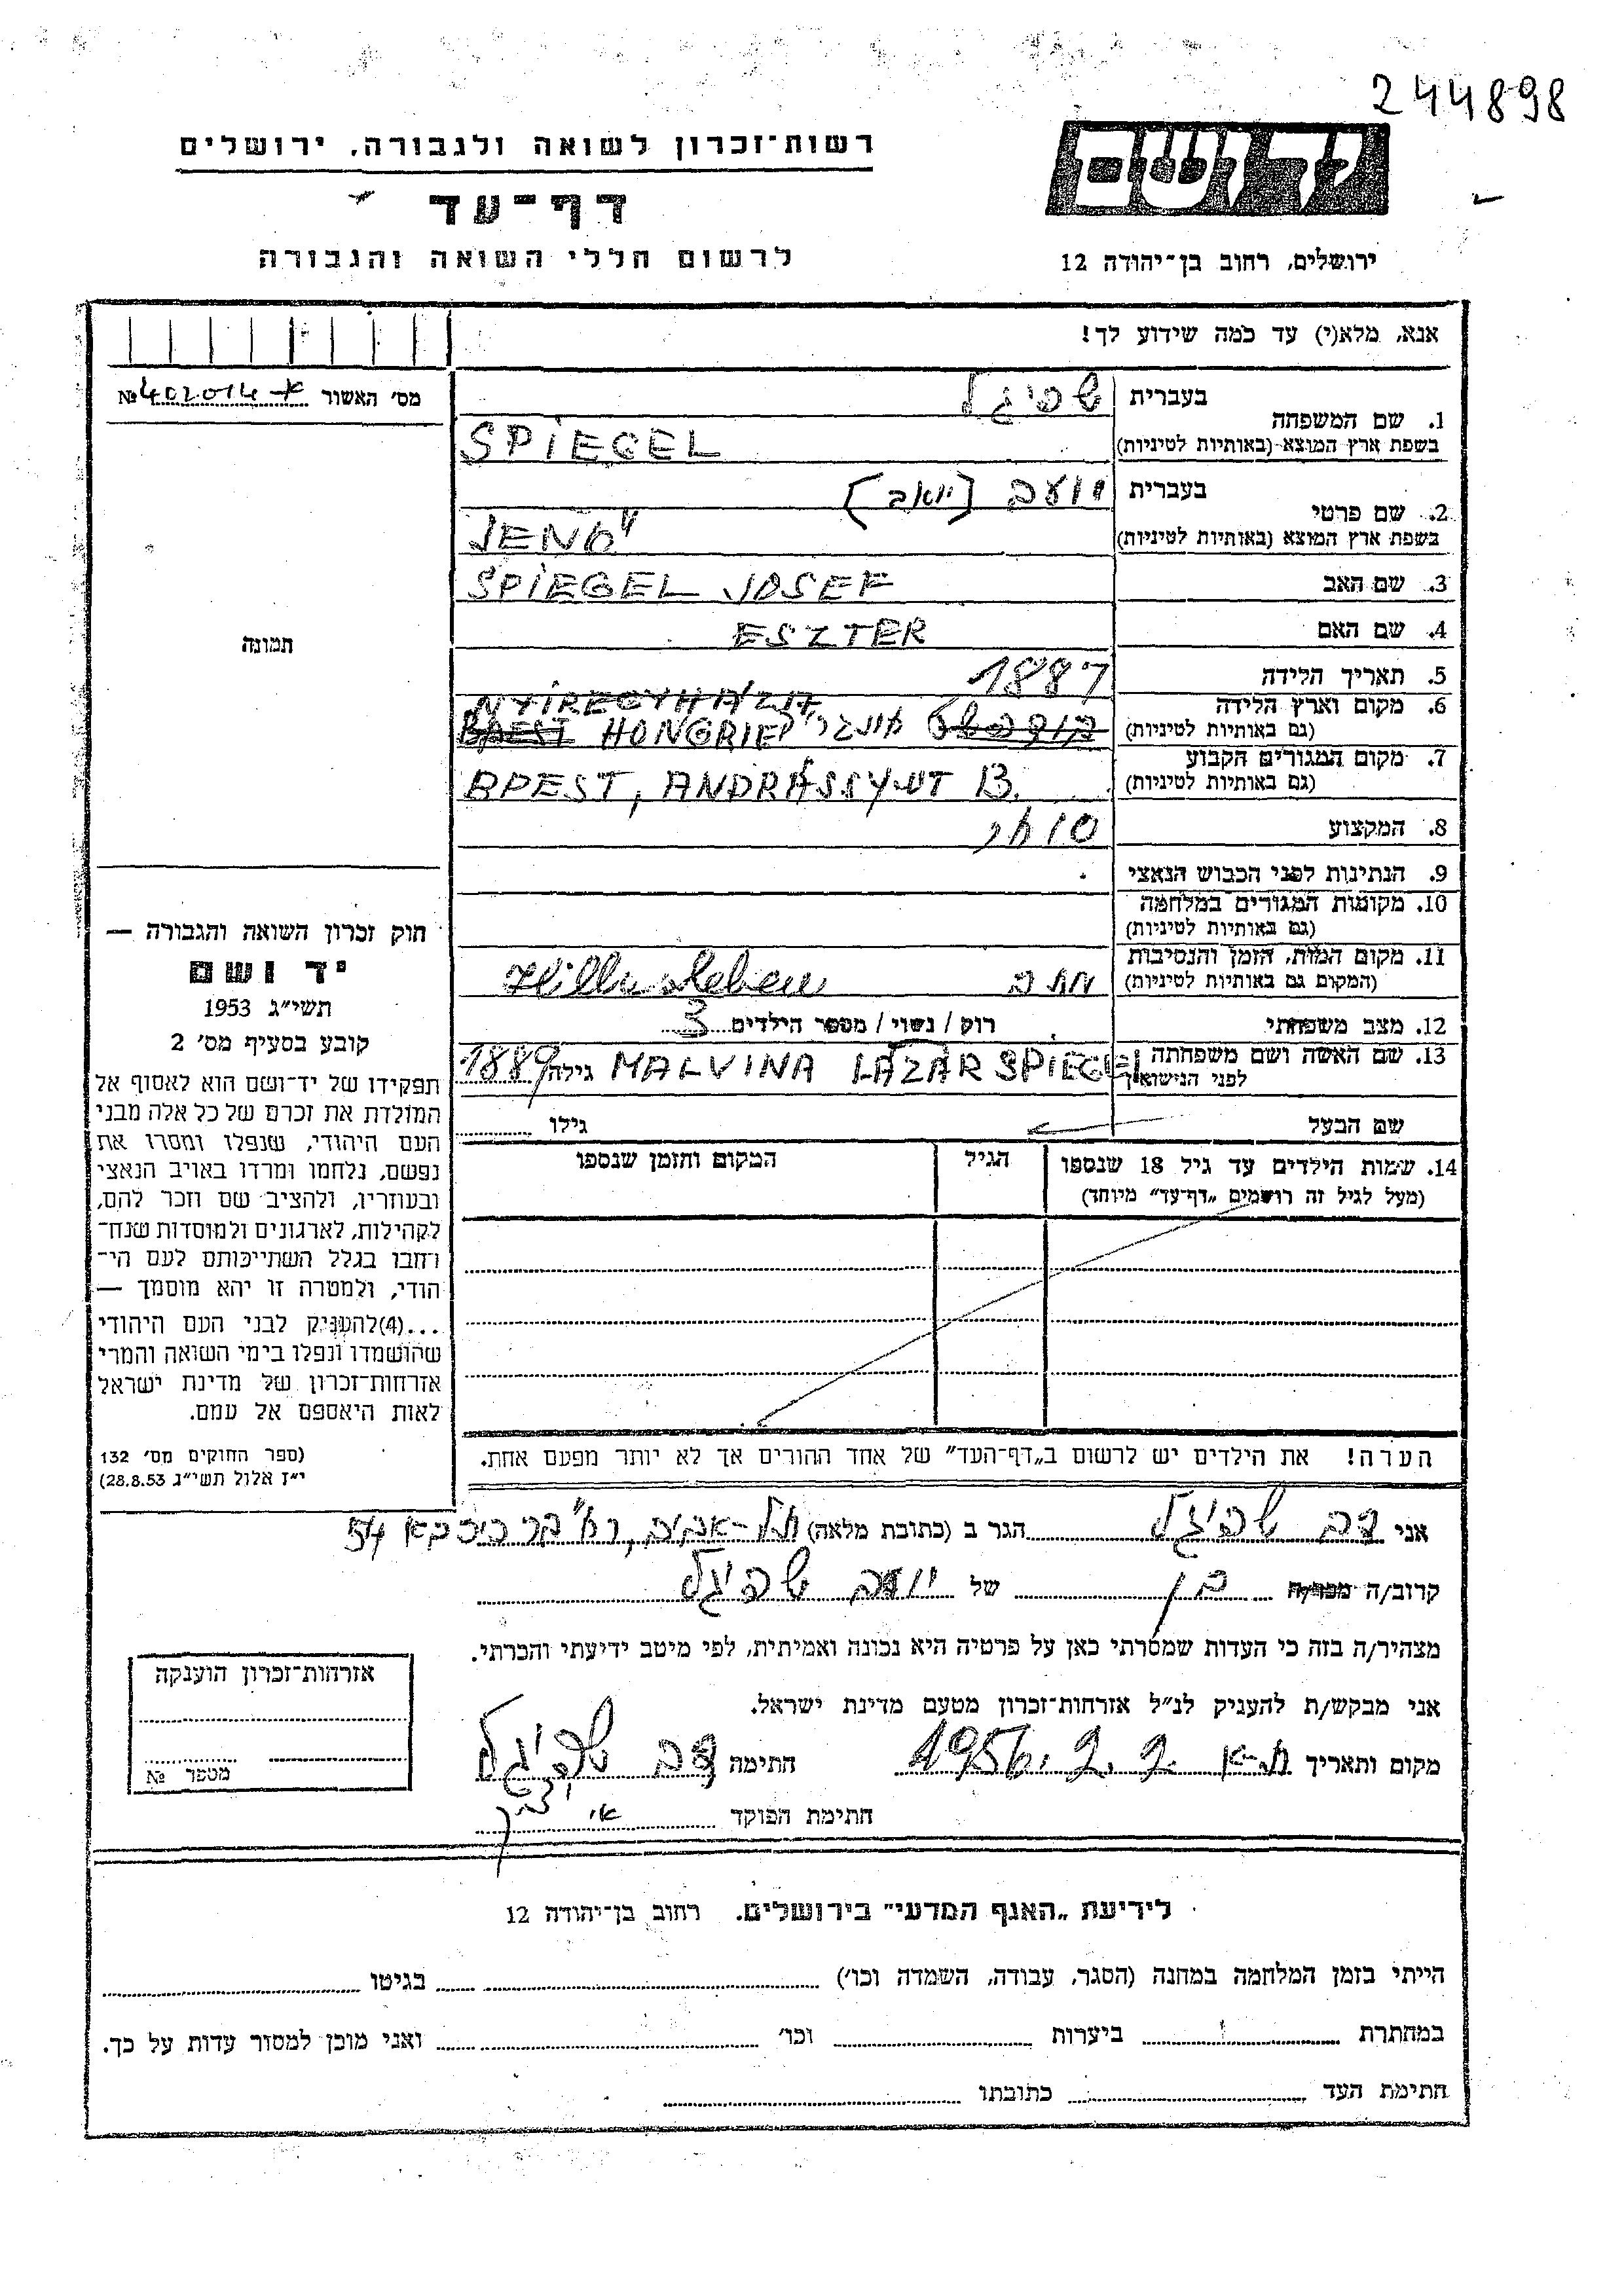 244898
רשות־זכרון לשואה ולגבורה, ירושלים
יד ושם
דף־עד
לרשום חללי השואה והגבורה
ירושלים, רחוב בן־יהודה 12
אנא, מלא(י) עד כמה שידוע לך!
מס' האשור № 402014
1. שם המשפחה בעברית שפיגל
בשפת ארץ המוצא (באותיות לטיניות) SPIEGEL
2. שם פרטי בעברית (יואב)
בשפת ארץ המוצא (באותיות לטיניות) JENŐ
3. שם האב SPIEGEL JOSEF
4. שם האם ESZTER
תמונה
5. תאריך הלידה 1887
6. מקום וארץ הלידה NYIREGYHAZA
(גם באותיות לטיניות) בודפשט BPEST HONGRIE
7. מקום המגורים הקבוע
(גם באותיות לטיניות) BPEST, ANDRÁSSY UT 13.
8. המקצוע סוחר
9. הנתינות לפני הכבוש הנאצי
10. מקומות המגורים במלחמה
(גם באותיות לטיניות)
11. מקום המות, הזמן והנסיבות
(המקום גם באותיות לטיניות) Hillersleben
12. מצב משפחתי רוק / נשוי / מספר הילדים 3
13. שם האשה ושם משפחתה
לפני הנישואין MALVINA LAZAR SPIEGEL גילה 1889
שם הבעל גילו
14. שמות הילדים עד גיל 18 שנספו הגיל המקום והזמן שנספו
(מעל לגיל זה רושמים „דף־עד" מיוחד)
חוק זכרון השואה והגבורה —
יד ושם
תשי"ג 1953
קובע בסעיף מס' 2
תפקידו של יד־ושם הוא לאסוף אל
המולדת את זכרם של כל אלה מבני
העם היהודי, שנפלו ומסרו את
נפשם, נלחמו ומרדו באויב הנאצי
ובעוזריו, ולהציב שם וזכר להם,
לקהילות, לארגונים ולמוסדות שנח־
רחבו בגלל השתייכותם לעם הי־
הודי, ולמטרה זו יהא מוסמך —
...(4)להעניק לבני העם היהודי
שהושמדו ונפלו בימי השואה והמרי
אזרחות־זכרון של מדינת ישראל
לאות היאספם אל עמם.
(ספר החוקים מס' 132
י"ז אלול תשי"ג 28.8.53)
הערה! את הילדים יש לרשום ב„דף־העד" של אחד ההורים אך לא יותר מפעם אחת.
אני דב שפיגל הגר ב (כתובת מלאה) תל-אביב, רח' בר כוכבא 54
קרוב/ה מכר/ה בן של יואב שפיגל
מצהיר/ה בזה כי העדות שמסרתי כאן על פרטיה היא נכונה ואמיתית, לפי מיטב ידיעתי והכרתי.
אני מבקש/ת להעניק לנ"ל אזרחות־זכרון מטעם מדינת ישראל.
מקום ותאריך ת-א 2. 2. 1956 חתימה דב שפיגל
חתימת הפוקד
אזרחות־זכרון הוענקה
מספר №
לידיעת „האגף המדעי" בירושלים. רחוב בן־יהודה 12
הייתי בזמן המלחמה במחנה (הסגר, עבודה, השמדה וכו') בגיטו
במחתרת ביערות וכו' ואני מוכן למסור עדות על כך.
חתימת העד כתובתו